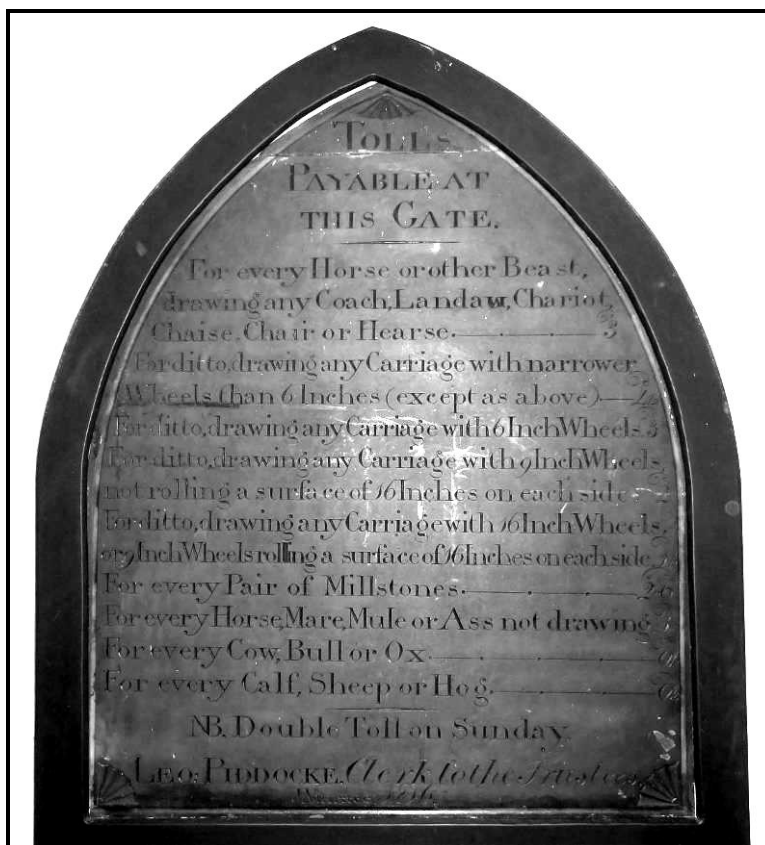 TOLLS
PAYABLE AT
THIS GATE.
For every Horse or other Beast,
drawing any Coach, Landaw, Chariot,
Chaise, Chair or Hearse. 3
For ditto, drawing any Carriage with narrower
Wheels than 6 Inches (except as above)
For ditto, drawing any Carriage with 6 Inch Wheels
For ditto, drawing any Carriage with 9 Inch Wheels
not rolling a surface of 16 Inches on each side
For ditto, drawing any Carriage with 16 Inch Wheels,
or 9 Inch Wheels rolling a surface of 16 Inches on each side
For every Pair of Millstones.
For every Horse, Mare, Mule or Ass not drawing
For every Cow, Bull or Ox.
For every Calf, Sheep or Hog.
NB. Double Toll on Sunday.
LEO: PIDDOCKE, Clerk to the Trustees